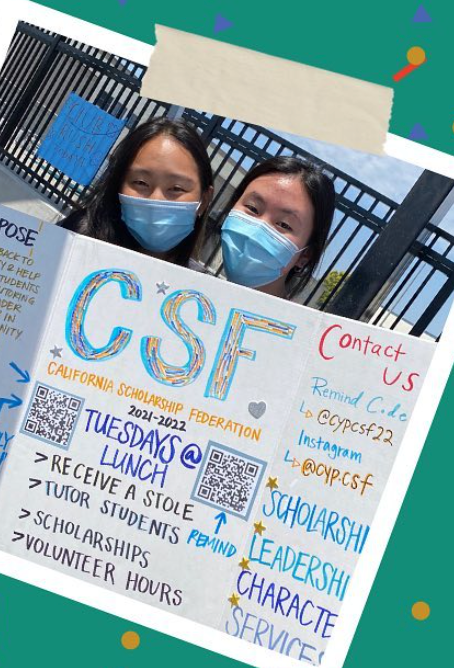 POSE
BACK TO
Y & HELP
STUDENTS
IN
NITY
CSF
CALIFORNIA SCHOLARSHIP FEDERATION
2021-2022
TUESDAYS @
LUNCH
> RECEIVE A STOLE
> TUTOR STUDENTS
> SCHOLARSHIPS
> VOLUNTEER HOURS
REMIND
Contact
US
Remind Code
@cypcsf22
Instagram
@cyp.csf
SCHOLARSHI
LEADERSHI
CHARACTE
SERVICE